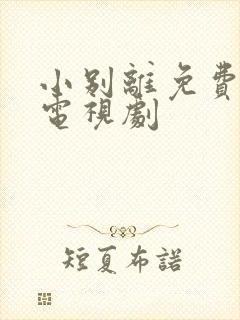 小别離免費
電視劇
短夏布諾